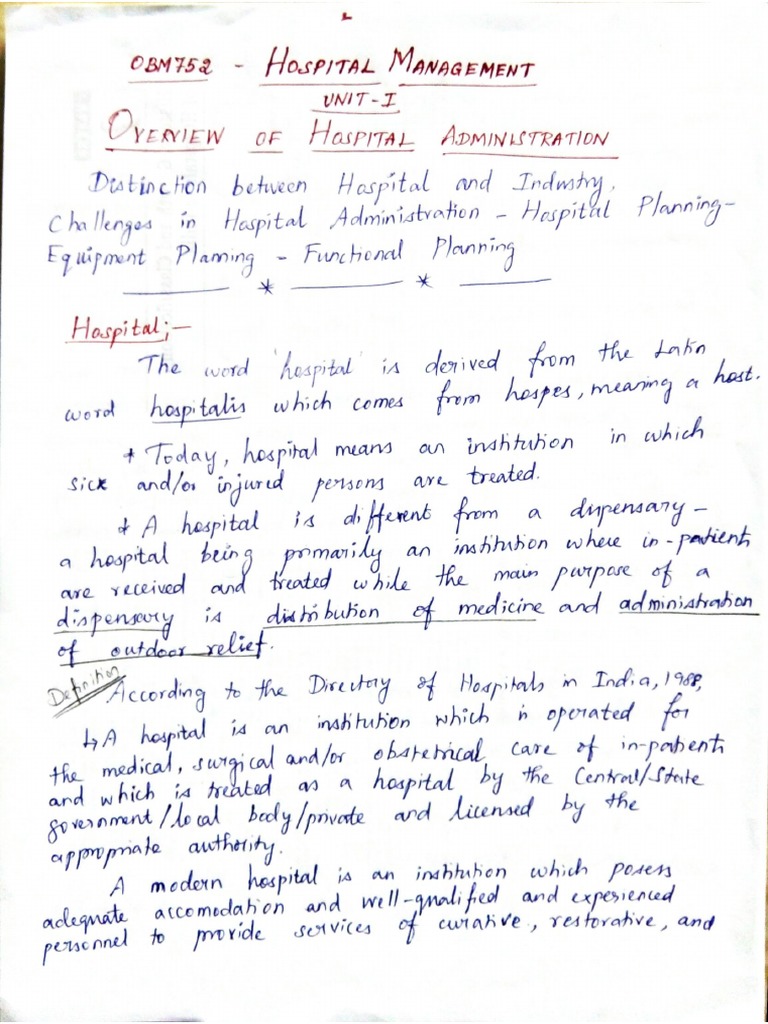 OBM752 - HOSPITAL MANAGEMENT
UNIT-I
OVERVIEW OF HOSPITAL ADMINISTRATION
Distinction between Hospital and Industry,
Challenges in Hospital Administration - Hospital Planning-
Equipment Planning - Functional Planning
Hospital;-
The word 'hospital' is derived from the Latin
word hospitalis which comes from hospes, meaning a host.
* Today, hospital means an institution in which
sick and/or injured persons are treated.
* A hospital is different from a dispensary -
a hospital being primarily an institution where in-patients
are received and treated while the main purpose of a
dispensary is distribution of medicine and administration
of outdoor relief.
Definition
According to the Directory of Hospitals in India, 1988,
↳ A hospital is an institution which is operated for
the medical, surgical and/or obstetrical care of in-patients
and which is treated as a hospital by the Central/State
government/local body/private and licensed by the
appropriate authority.
A modern hospital is an institution which posess
adequate accomodation and well-qualified and experienced
personnel to provide services of curative, restorative, and